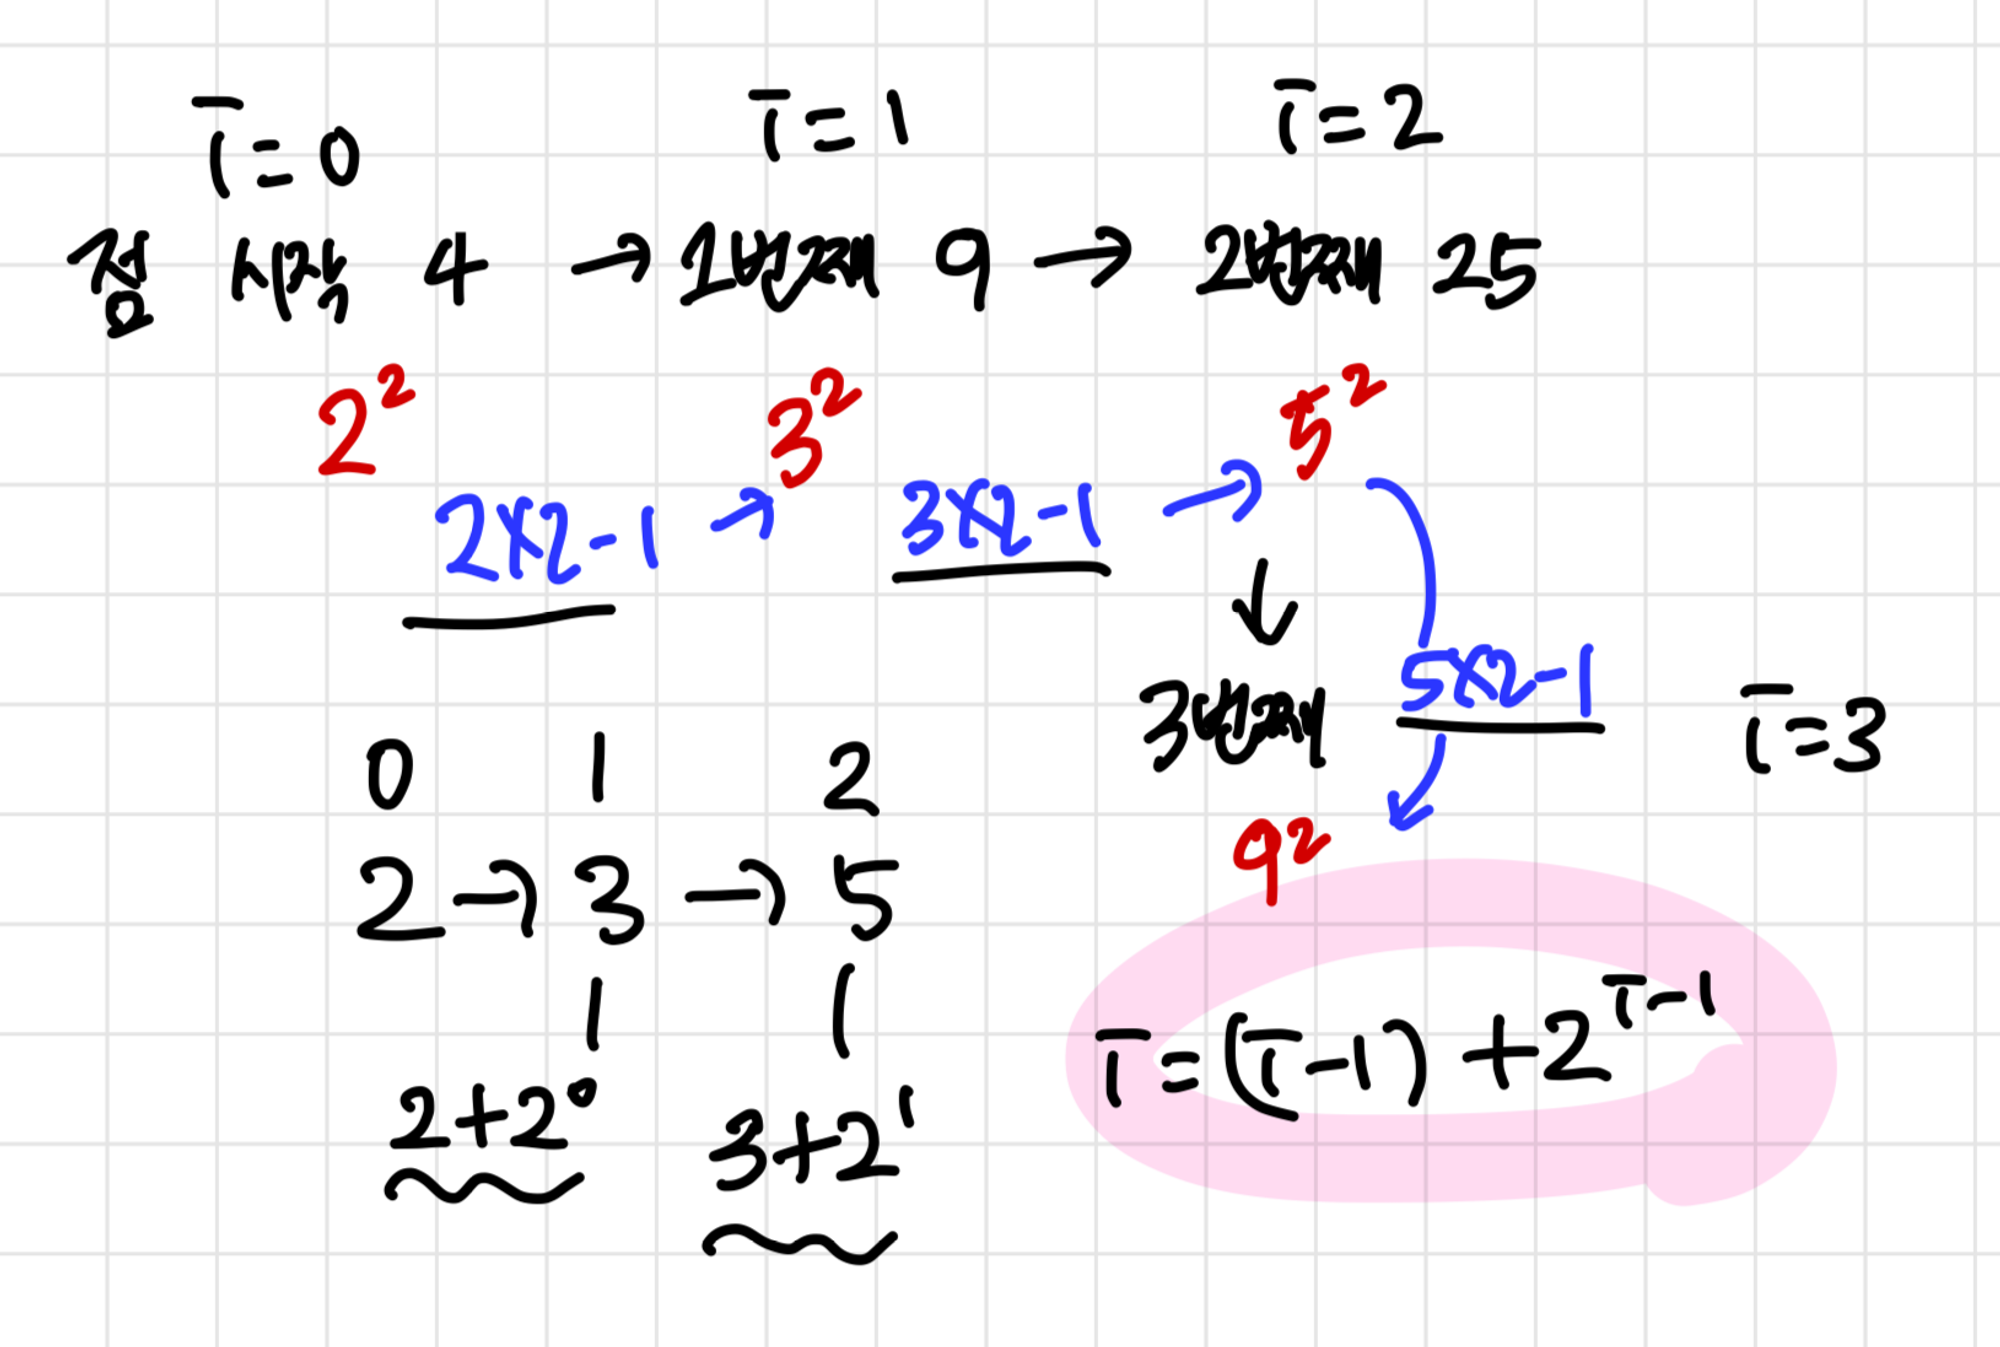 i=0 i=1 i=2
점 시작 4 → 1번째 9 → 2번째 25
2² 3² 5²
2×2-1 → 3×2-1 →
↓
3번째 5×2-1 i=3
9²
0 1 2
2 → 3 → 5
2+2⁰ 3+2¹
i=(i-1)+2^{i-1}